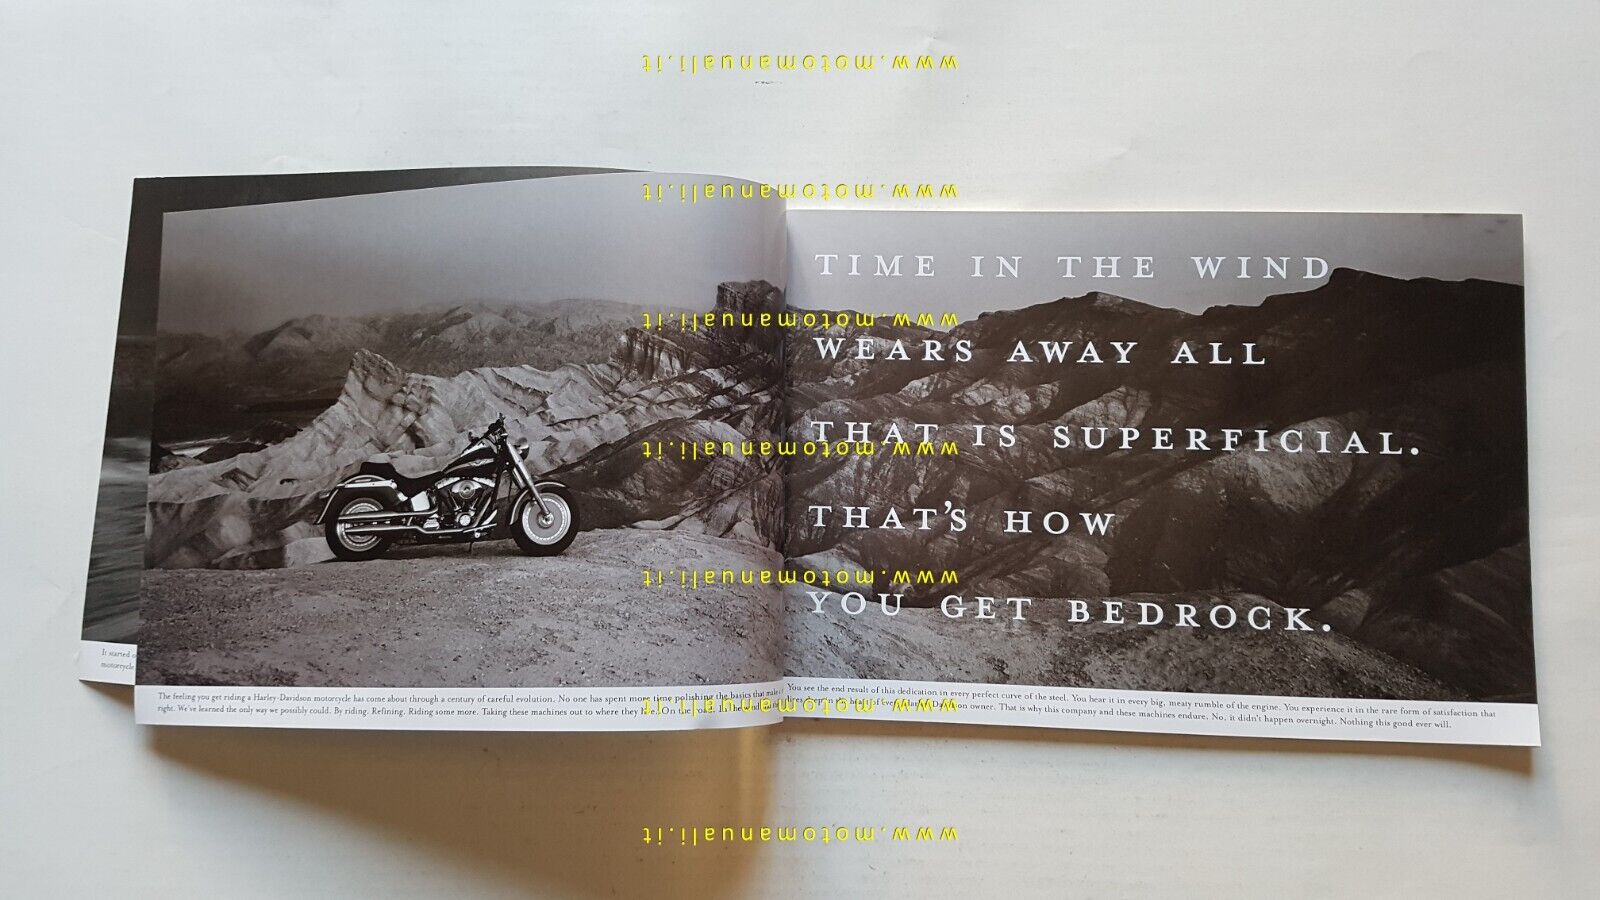 www.motomanuali.it
www.motomanuali.it
TIME IN THE WIND
www.motomanuali.it
WEARS AWAY ALL
THAT IS SUPERFICIAL.
www.motomanuali.it
THAT'S HOW
www.motomanuali.it
YOU GET BEDROCK.
It started
motorcycle
The feeling you get riding a Harley-Davidson motorcycle has come about through a century of careful evolution. No one has spent more time polishing the basics that make
right. We've learned the only way we possibly could. By riding. Refining. Riding some more. Taking these machines out to where they live. On the road. In the wind.
www.motomanuali.it
You see the end result of this dedication in every perfect curve of the steel. You hear it in every big, meaty rumble of the engine. You experience it in the rare form of satisfaction that
owner. That is why this company and these machines endure. No, it didn't happen overnight. Nothing this good ever will.
www.motomanuali.it